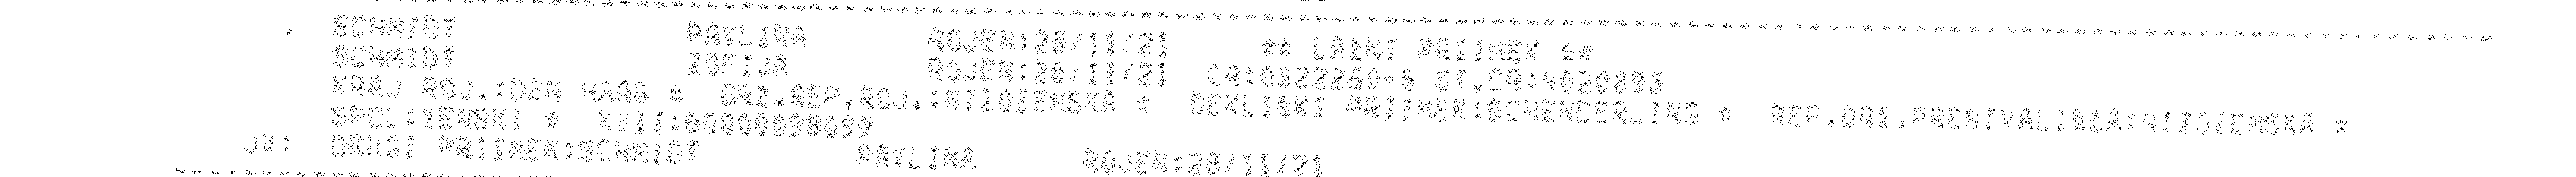 * SCHMIDT PAVLINA ROJEN:25/11/21 ** LAZNI PRIIMEK **
SCHMIDT ZOFIJA ROJEN:25/11/21 CR:0822260-S ST.CR:4020893
KRAJ ROJ.:DEN HAAG * DRZ.REP.ROJ.:NIZOZEMSKA * DEKLISKI PRIIMEK:SCHENDERLING * REP.DRZ.PREBIVALISCA:NIZOZEMSKA *
SPOL:ZENSKI * XVII:00000098099
JV: DRUGI PRIIMEK:SCHMIDT PAVLINA ROJEN:25/11/21